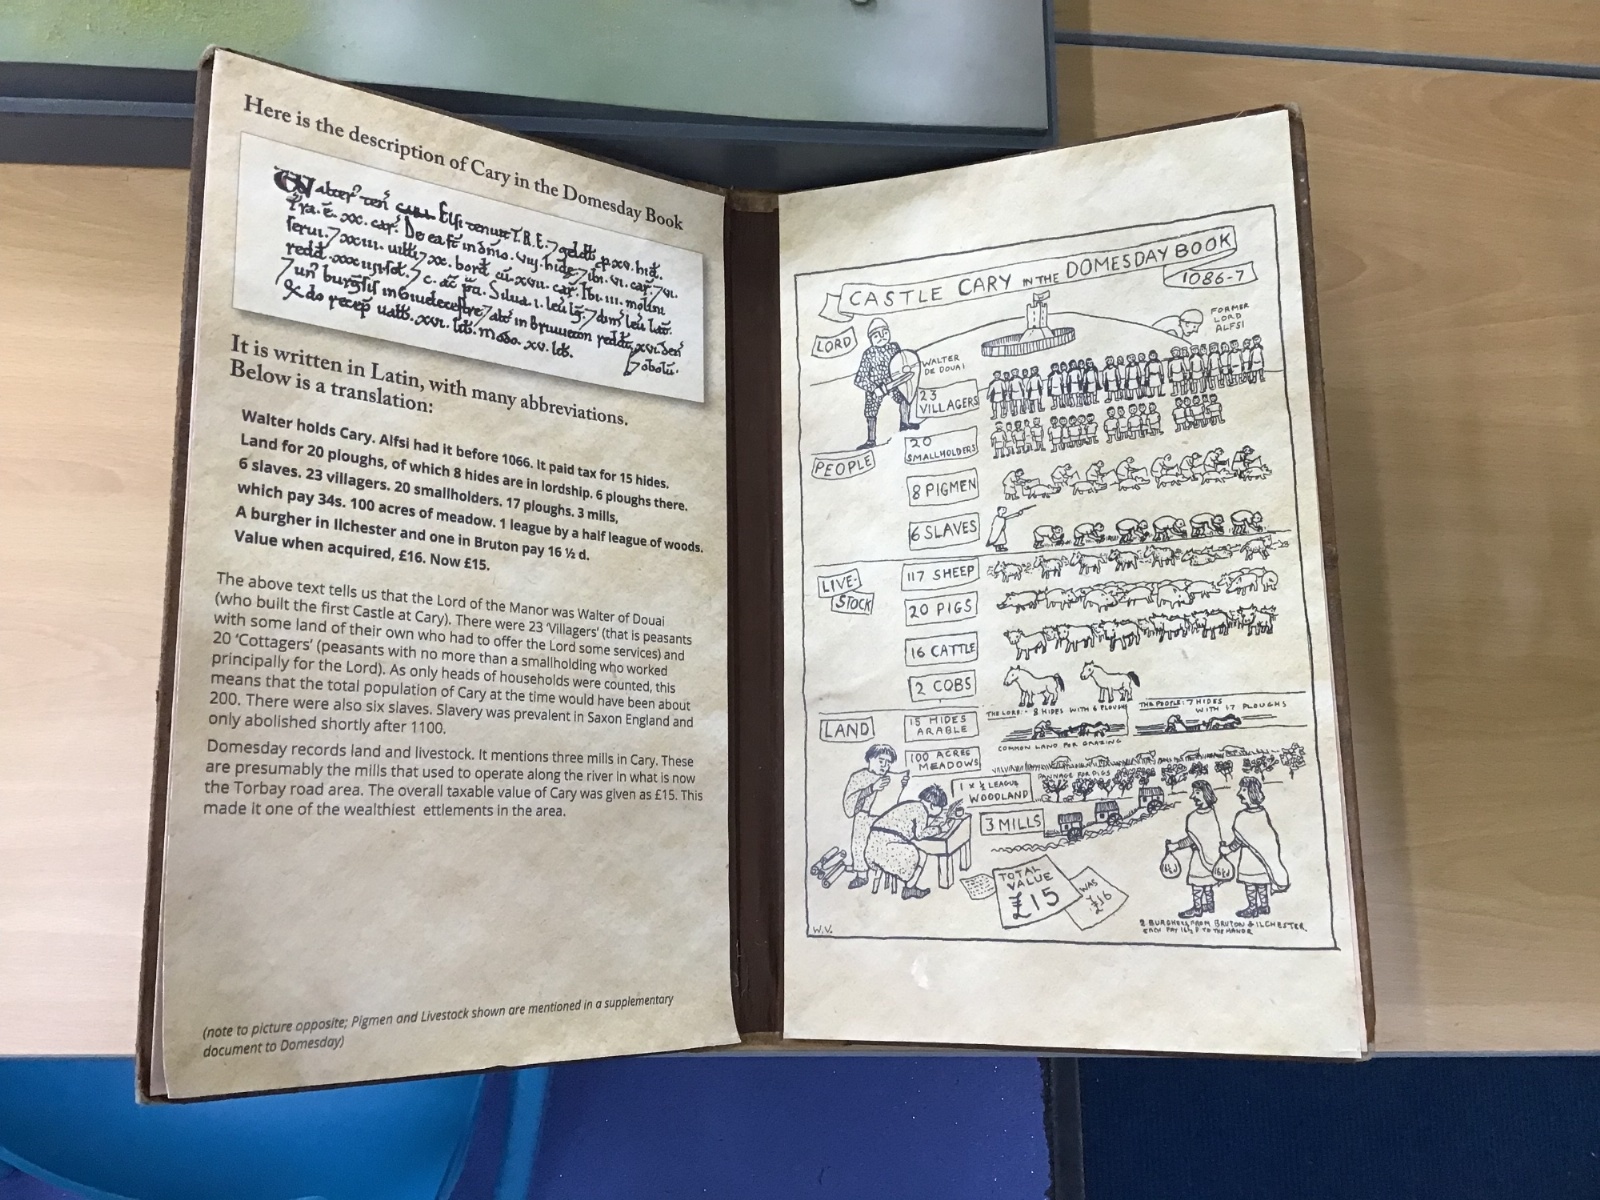 Here is the description of Cary in the Domesday Book
Walter ten
T.R.E.
It is written in Latin, with many abbreviations.
Below is a translation:
Walter holds Cary. Alfsi had it before 1066. It paid tax for 15 hides.
Land for 20 ploughs, of which 8 hides are in lordship. 6 ploughs there.
6 slaves. 23 villagers. 20 smallholders. 17 ploughs. 3 mills,
which pay 34s. 100 acres of meadow. 1 league by a half league of woods.
A burgher in Ilchester and one in Bruton pay 16 ½ d.
Value when acquired, £16. Now £15.
The above text tells us that the Lord of the Manor was Walter of Douai
(who built the first Castle at Cary). There were 23 'Villagers' (that is peasants
with some land of their own who had to offer the Lord some services) and
20 'Cottagers' (peasants with no more than a smallholding who worked
principally for the Lord). As only heads of households were counted, this
means that the total population of Cary at the time would have been about
200. There were also six slaves. Slavery was prevalent in Saxon England and
only abolished shortly after 1100.
Domesday records land and livestock. It mentions three mills in Cary. These
are presumably the mills that used to operate along the river in what is now
the Torbay road area. The overall taxable value of Cary was given as £15. This
made it one of the wealthiest ettlements in the area.
(note to picture opposite; Pigmen and Livestock shown are mentioned in a supplementary
document to Domesday)
CASTLE CARY IN THE DOMESDAY BOOK
1086-7
FORMER
LORD
ALFSI
LORD
WALTER
DE DOUAI
23
VILLAGERS
20
SMALLHOLDERS
PEOPLE
8 PIGMEN
6 SLAVES
LIVE-
STOCK
117 SHEEP
20 PIGS
16 CATTLE
2 COBS
LAND
15 HIDES
ARABLE
THE LORD: 8 HIDES WITH 6 PLOUGHS
THE PEOPLE: 7 HIDES
WITH 17 PLOUGHS
COMMON LAND FOR GRAZING
100 ACRES
MEADOWS
PANNAGE FOR PIGS
1 x ½ LEAGUE
WOODLAND
3 MILLS
TOTAL
VALUE
£15
WAS
£16
2 BURGHERS FROM BRUTON & ILCHESTER
EACH PAY 16½ D TO THE MANOR
W.V.